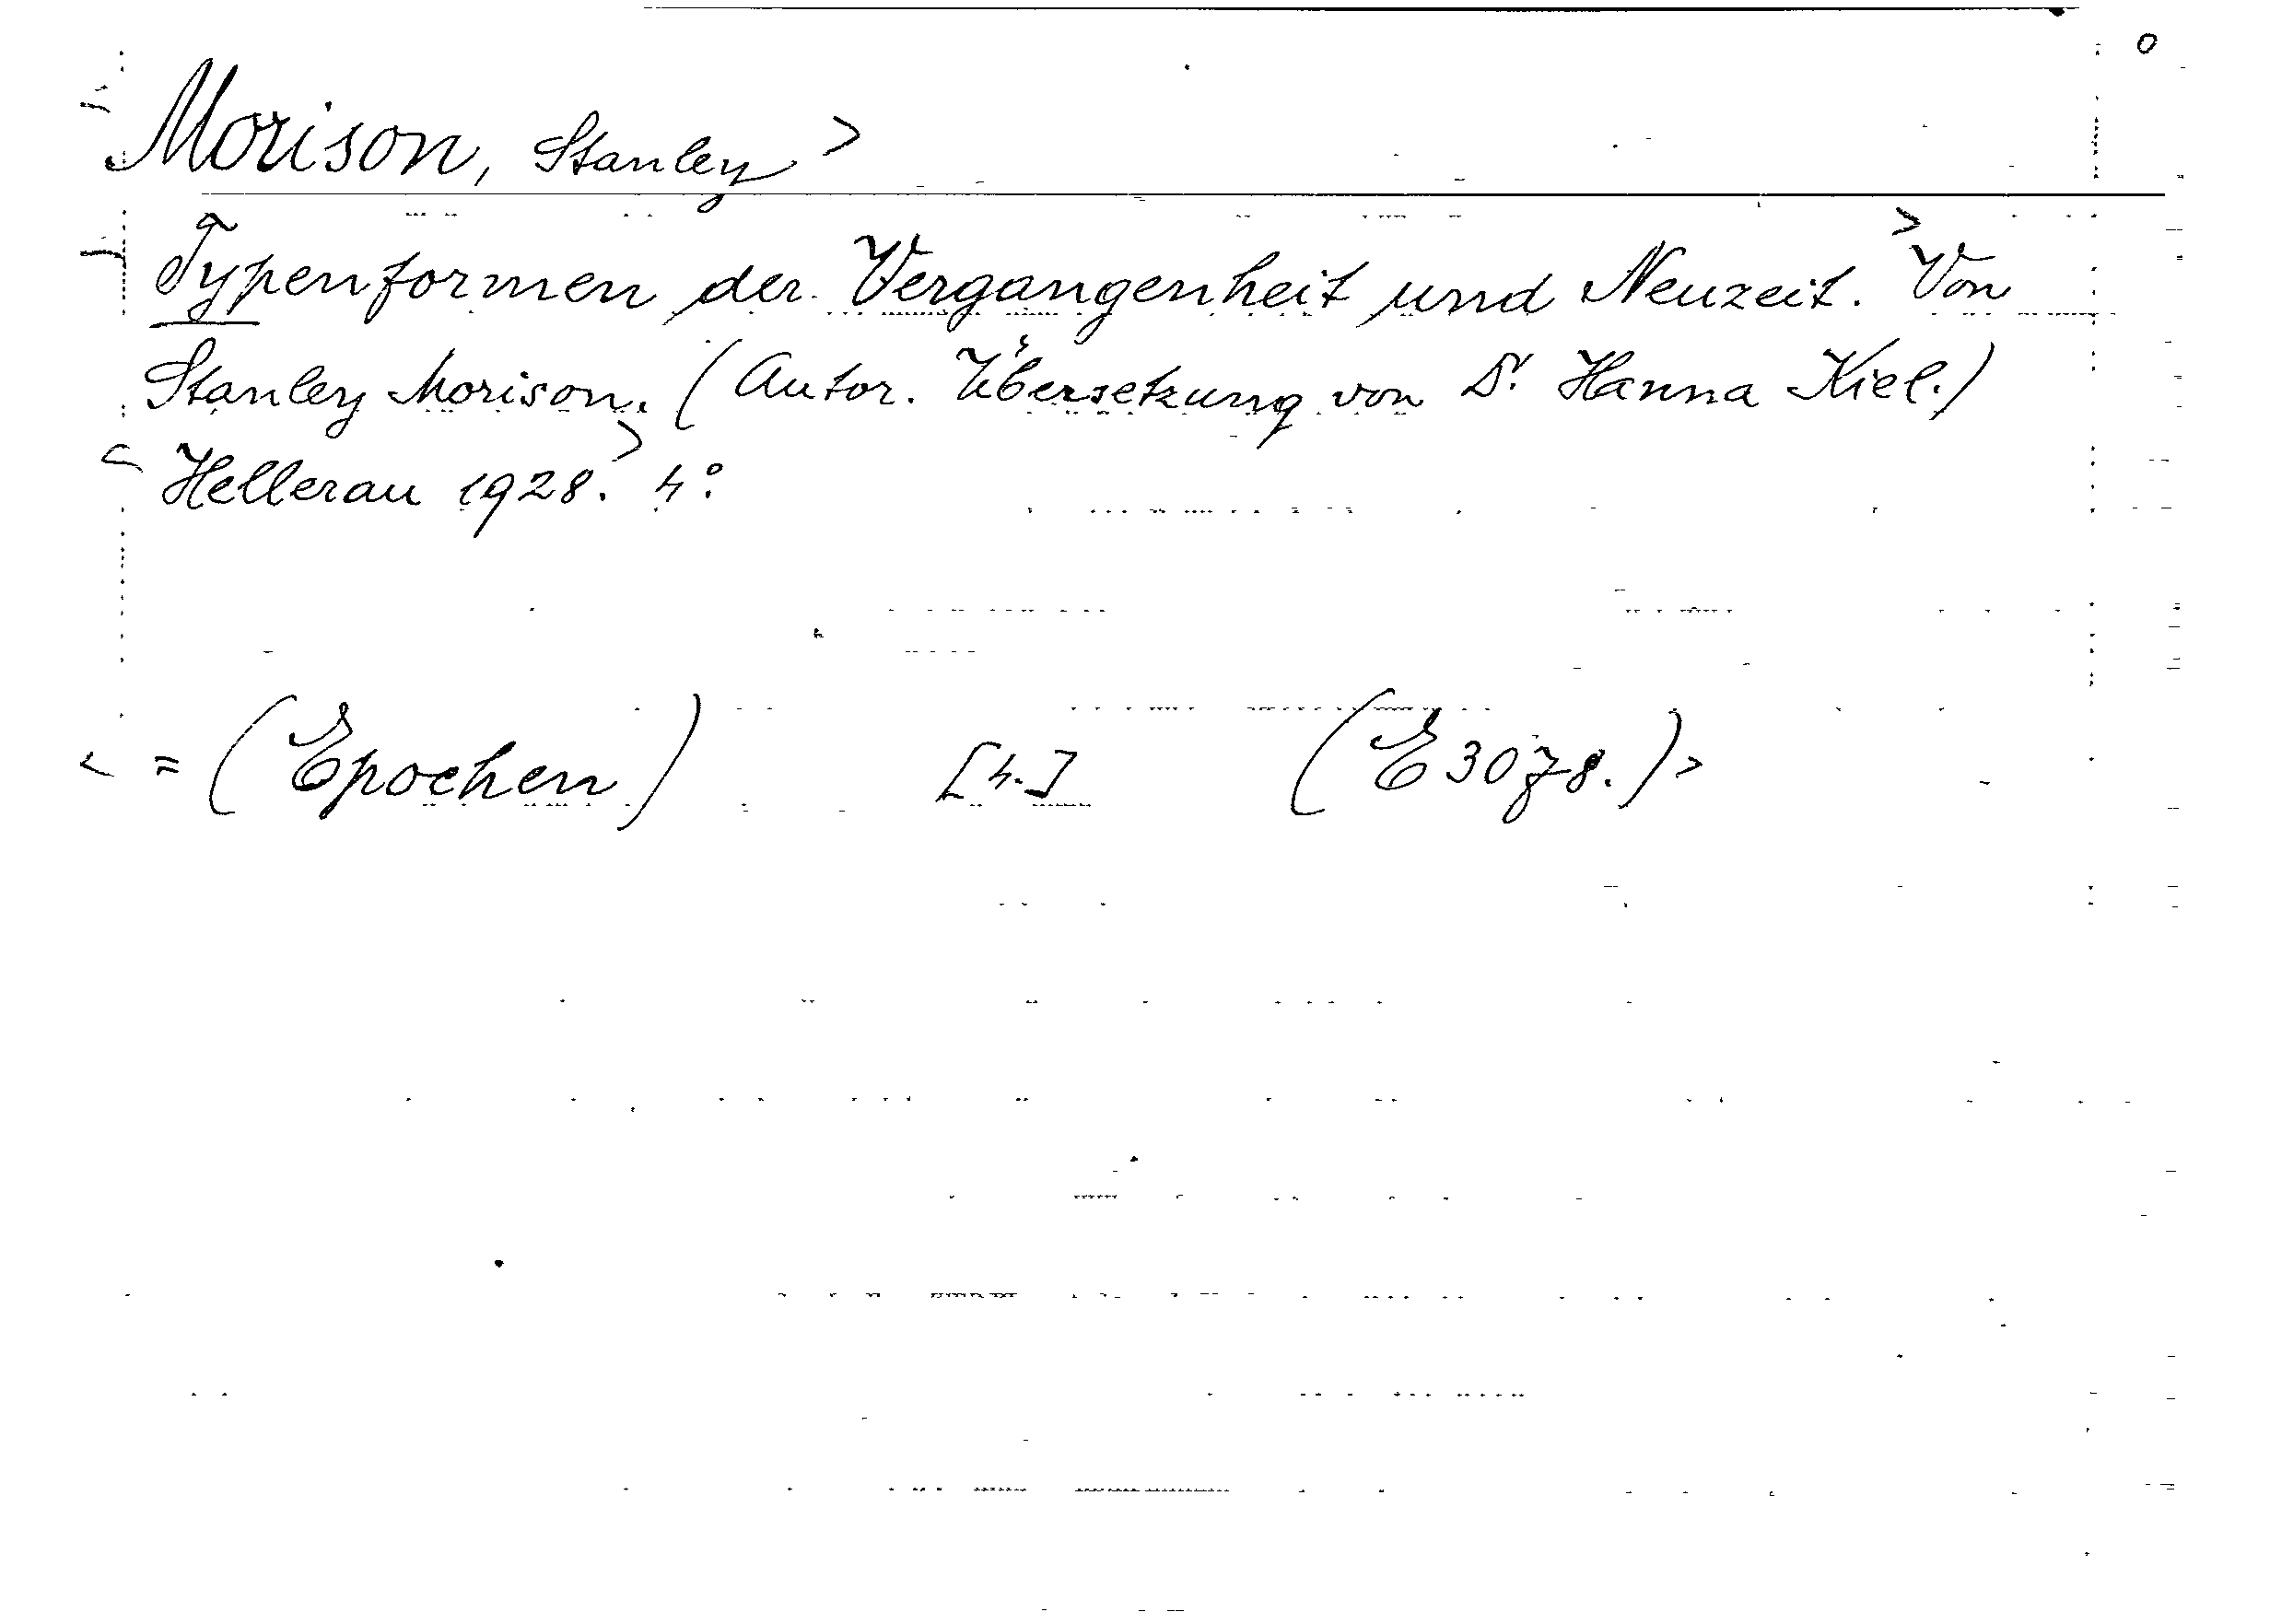 Morison, Stanley >
Typenformen der Vergangenheit und Neuzeit.> Von
Stanley Morison. (Autor. Übersetzung von Dr. Hanna Kiel.)
Hellerau 1928.> 4°.
< = (Epochen) [4.] (E 3078.)>